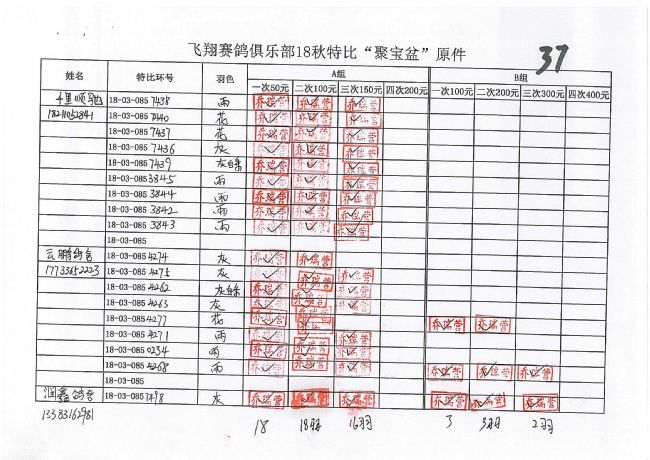 飞翔赛鸽俱乐部18秋特比“聚宝盆”原件
37
姓名 特比环号 羽色 A组 B组
一次50元 二次100元 三次150元 四次200元 一次100元 二次200元 三次300元 四次400元
千里顺驰 18-03-085 7438 雨 乔瑞营 乔瑞营 乔瑞营
18211052841 18-03-085 7440 花 乔瑞营 乔瑞营 乔瑞营
18-03-085 7437 花 乔瑞营 乔瑞营 乔瑞营
18-03-085 7436 灰 乔瑞营 乔瑞营 乔瑞营
18-03-085 7439 灰白条 乔瑞营 乔瑞营 乔瑞营
18-03-085 3845 雨 乔瑞营 乔瑞营 乔瑞营
18-03-085 3844 雨 乔瑞营 乔瑞营 乔瑞营
18-03-085 3842 雨 乔瑞营 乔瑞营 乔瑞营
18-03-085 3843 雨 乔瑞营 乔瑞营 乔瑞营
18-03-085
云鹏鸽舍 18-03-085 4274 灰 乔瑞营 乔瑞营
17733652223 18-03-085 4275 灰 乔瑞营 乔瑞营 乔瑞营
18-03-085 4262 灰白条 乔瑞营 乔瑞营 乔瑞营
18-03-085 4263 灰 乔瑞营 乔瑞营 乔瑞营
18-03-085 4277 花 乔瑞营 乔瑞营 乔瑞营 乔瑞营
18-03-085 4271 雨 乔瑞营 乔瑞营 乔瑞营
18-03-085 0234 雨 乔瑞营 乔瑞营 乔瑞营
18-03-085 4268 雨 乔瑞营 乔瑞营 乔瑞营 乔瑞营 乔瑞营 乔瑞营
18-03-085
润鑫鸽舍 18-03-085 7498 灰 乔瑞营 乔瑞营 乔瑞营 乔瑞营 乔瑞营 乔瑞营
13383162981 18 18羽 16羽 3 3羽 2羽